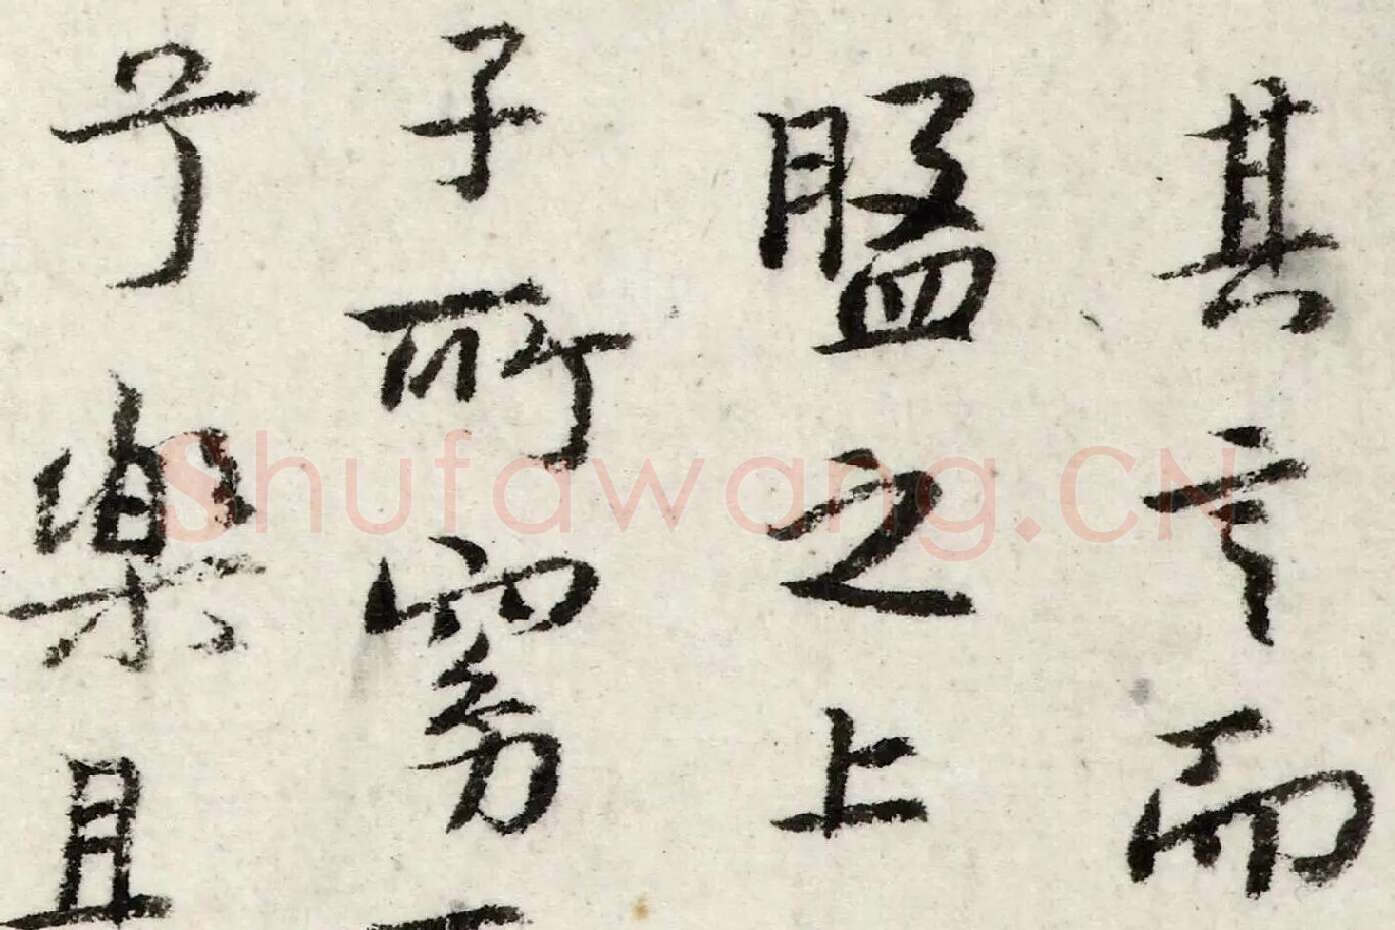 其言而
盤之上
子所窈
兮樂且
Shufawang.CN